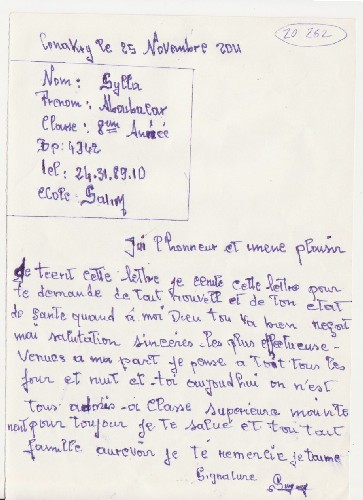 Conakry le 25 Novembre 2011
20 262
Nom : Sylla
Prenom : Aboubacar
Classe : 8ème Année
Bp: 4342
Tel: 24.31.89.10
ecole:
J'ai l'honneur et imene plaisir
de tecrit cette lettre je cette lettre pour
te demande de tait nouvell et de ton état
de Sante quand à moi Dieu tou va bien reçoit
mai salutation sincères les plus effectueuse
venues a ma part je pense a toit tous les
jour et nuit et toi aujoudhui on n'est
tous à classe superieure mainte
nent pour toujour je te salue et toi tait
famille aurevoir je te remercie je taime
Signature